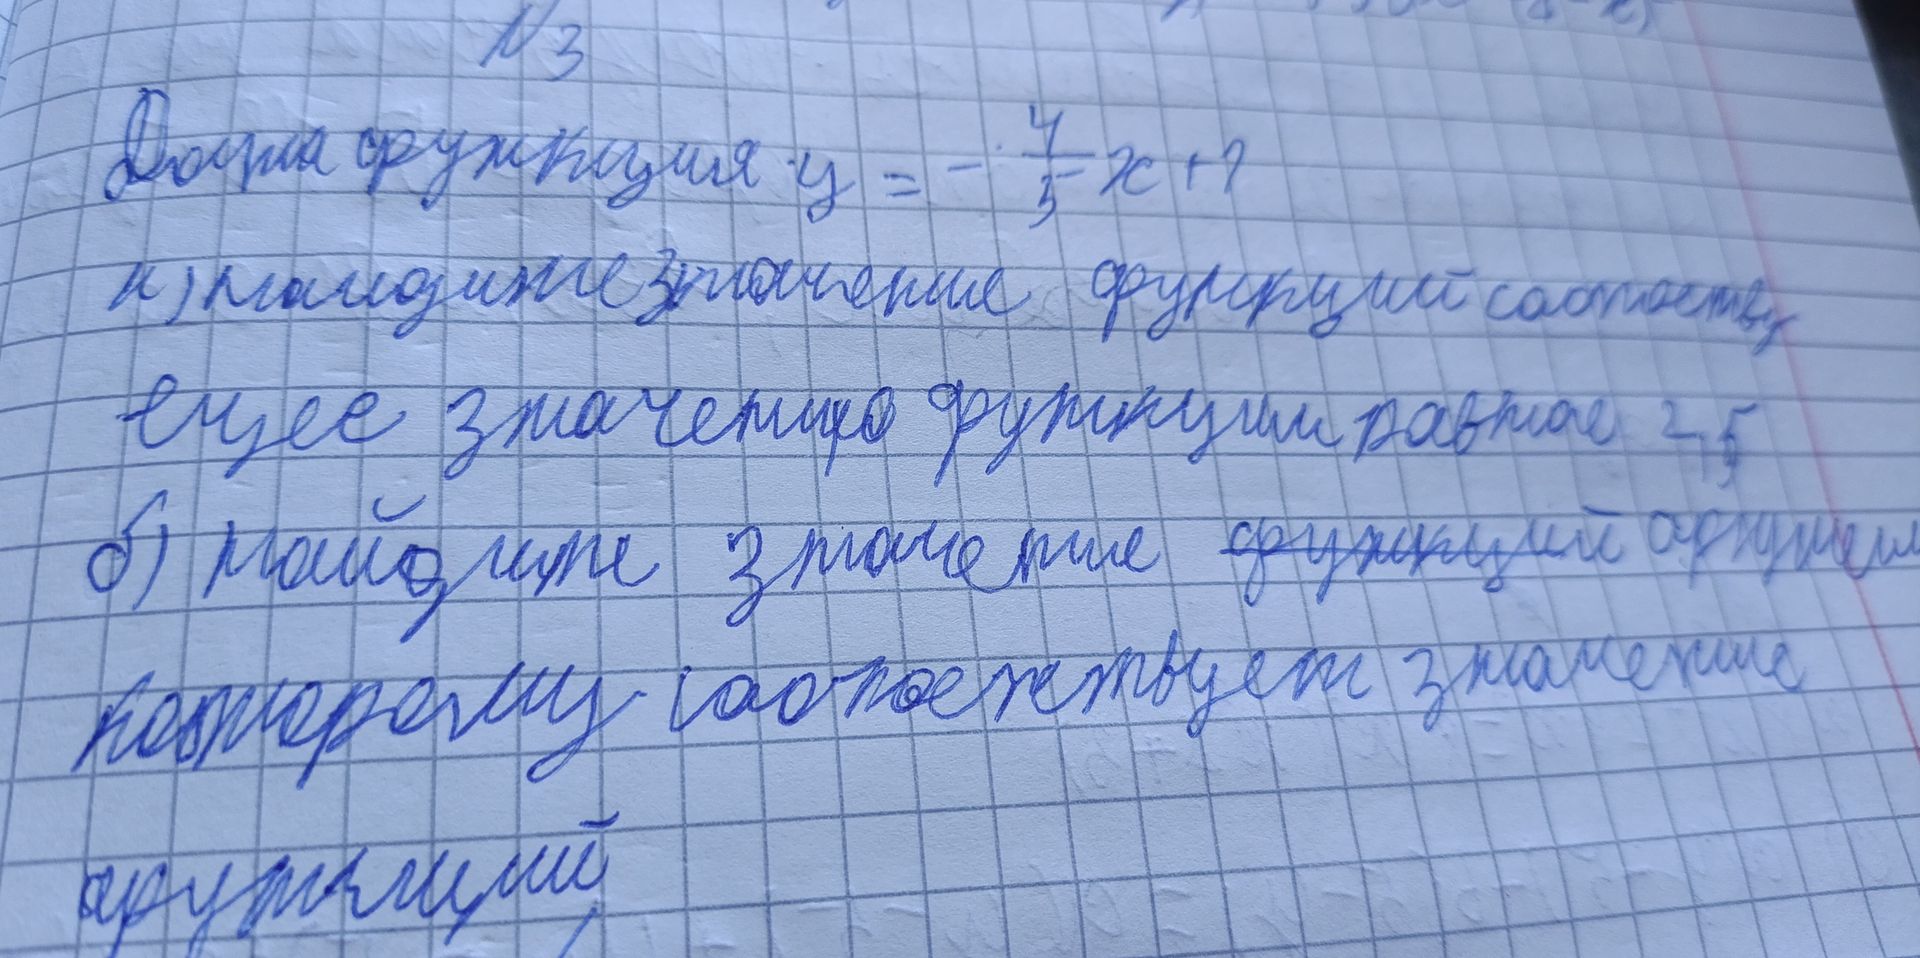 N3
Дана функция y = - 4/5 x + 1
а) найдите значение функций соответству
ещее значению функции равное 2,5
б) найдите значение функций аргумен
которому соответствует значение
функций